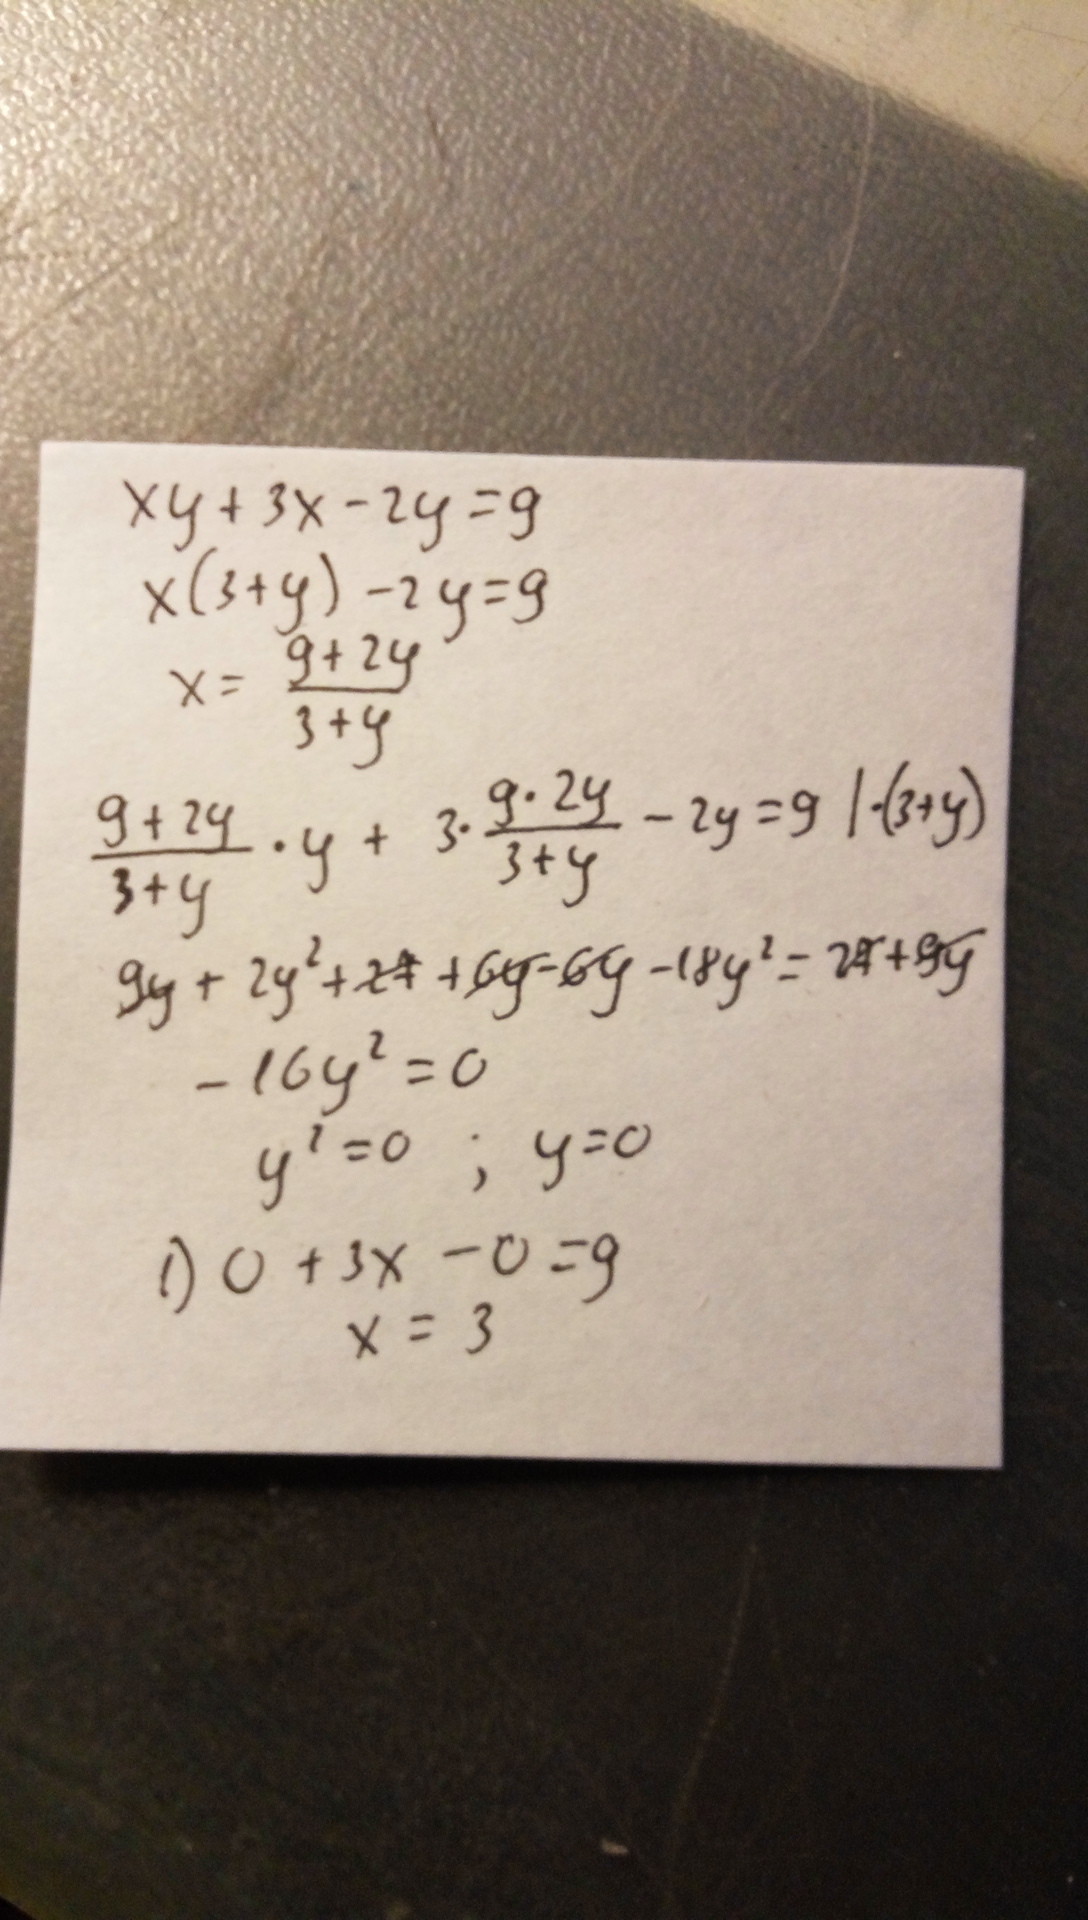 xy + 3x - 2y = 9
x(3+y) - 2y = 9
x = (9+2y)/(3+y)
(9+2y)/(3+y) · y + 3 · (9·2y)/(3+y) - 2y = 9 | ·(3+y)
9y + 2y² + 27 + 6y - 6y - 18y² = 27 + 9y
-16y² = 0
y² = 0 ; y = 0
1) 0 + 3x - 0 = 9
x = 3